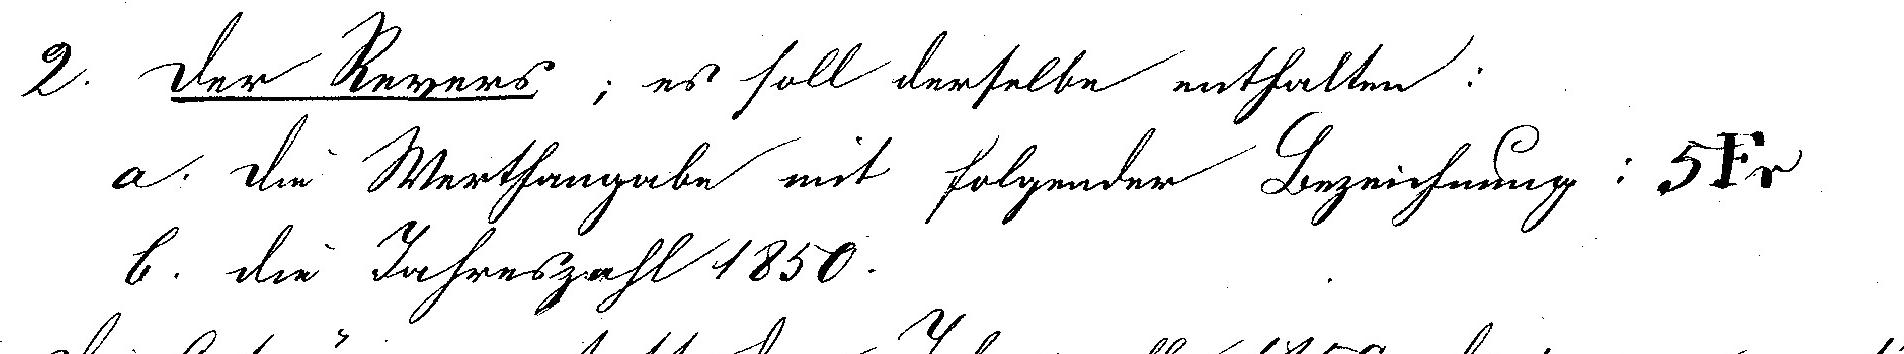 2. Der Revers ; es soll derselbe enthalten :
a. die Werthangabe mit folgender Bezeichnung : 5 Fr
b. die Jahreszahl 1850.